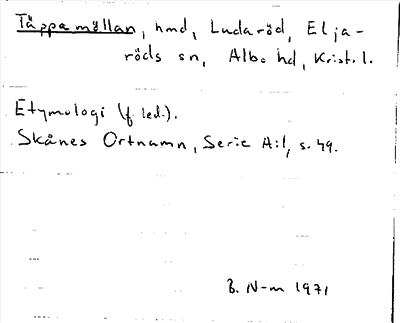 Täppamöllan, hmd, Ludaröd, Elja-
röds sn, Albo hd, Krist. l.
Etymologi (f. led.).
Skånes Ortnamn, Serie A:1, s. 49.
B. N-m 1971